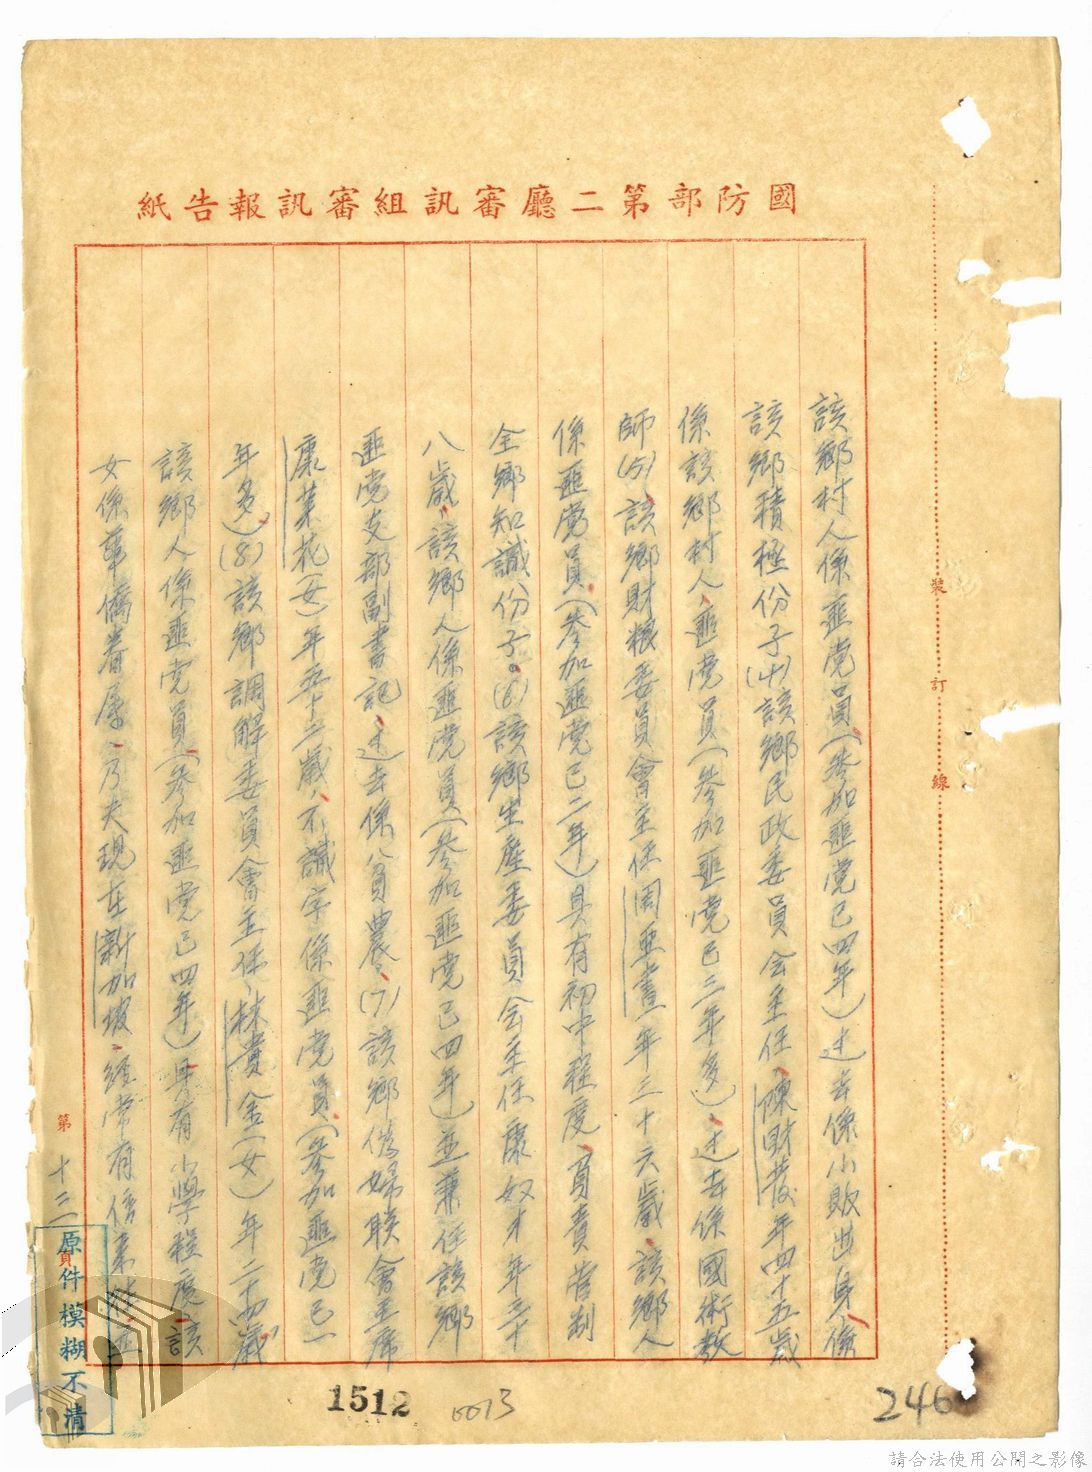 國防部第二廳審訊組審訊報告紙
該鄉村人係匪党員、(參加匪党已四年)过去係小販出身、係
該鄉積極份子(4)該鄉民政委員会主任、陳財發年四十五歲
係該鄉村人、匪党員(參加匪党已三年多)、过去係國術教
師(5)、該鄉財粮委員會主任周亜晝年三十六歲、該鄉人
係匪党員、(參加匪党已二年)具有初中程度、負責管制
全鄉知識份子。(6)該鄉生產委員会主任康奴才年三十
八歲、該鄉人係匪党員(參加匪党已四年)並兼任該鄉
匪党支部副書記、过去係貧農、(7)該鄉偽婦联會主席
康菜花(女)年五十三歲、不識字係匪党員、(參加匪党已一
年多)、(8)該鄉調解委員會主任、林貴金(女)年二十四歲
該鄉人係匪党員(參加匪党已四年)具有小學程度、該
女係華僑眷屬、乃夫現在新加坡、經常有信
第十三頁
裝訂線
原件模糊不清
1512
0013
246
請合法使用公開之影像